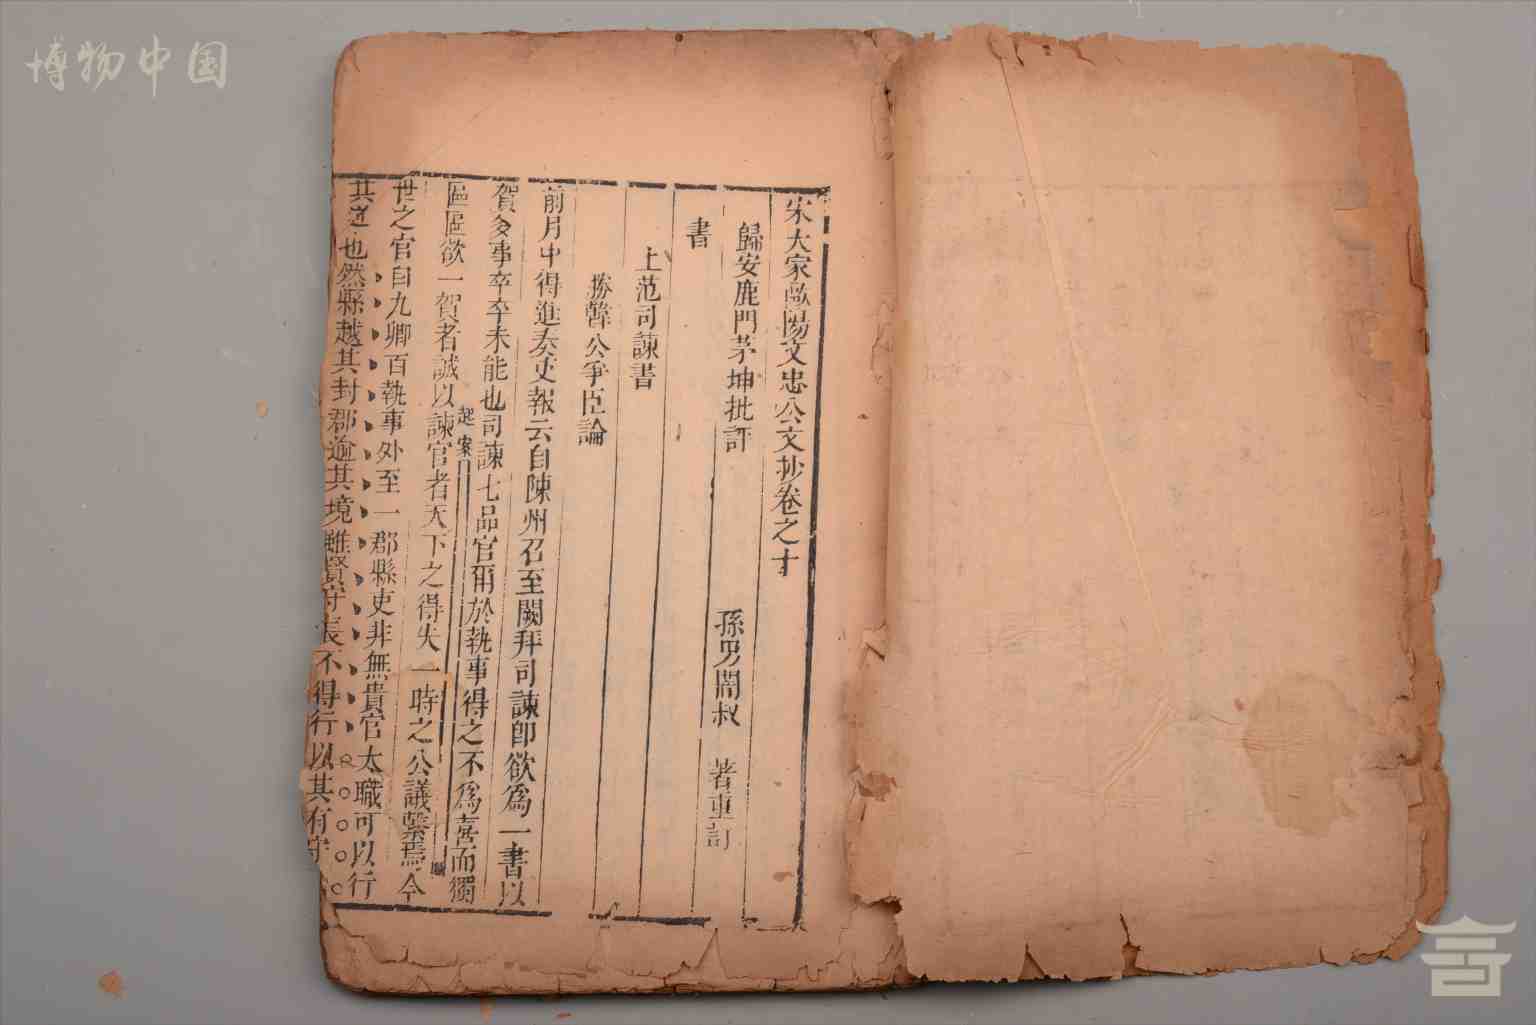 博物中国
宋大家歐陽文忠公文抄卷之十
歸安鹿門茅坤批評
孫男闇叔 著重訂
書
上范司諫書
勝韓公爭臣論
前月中得進奏吏報云自陳州召至闕拜司諫卽欲爲一書以
賀多事卒卒未能也司諫七品官爾於執事得之不爲喜而獨
起案
區區欲一賀者誠以諫官者天下之得失一時之公議繫焉今
世之官自九卿百執事外至一郡縣吏非無貴官大職可以行
其道也然縣越其封郡逾其境雖賢守長不得行以其有守